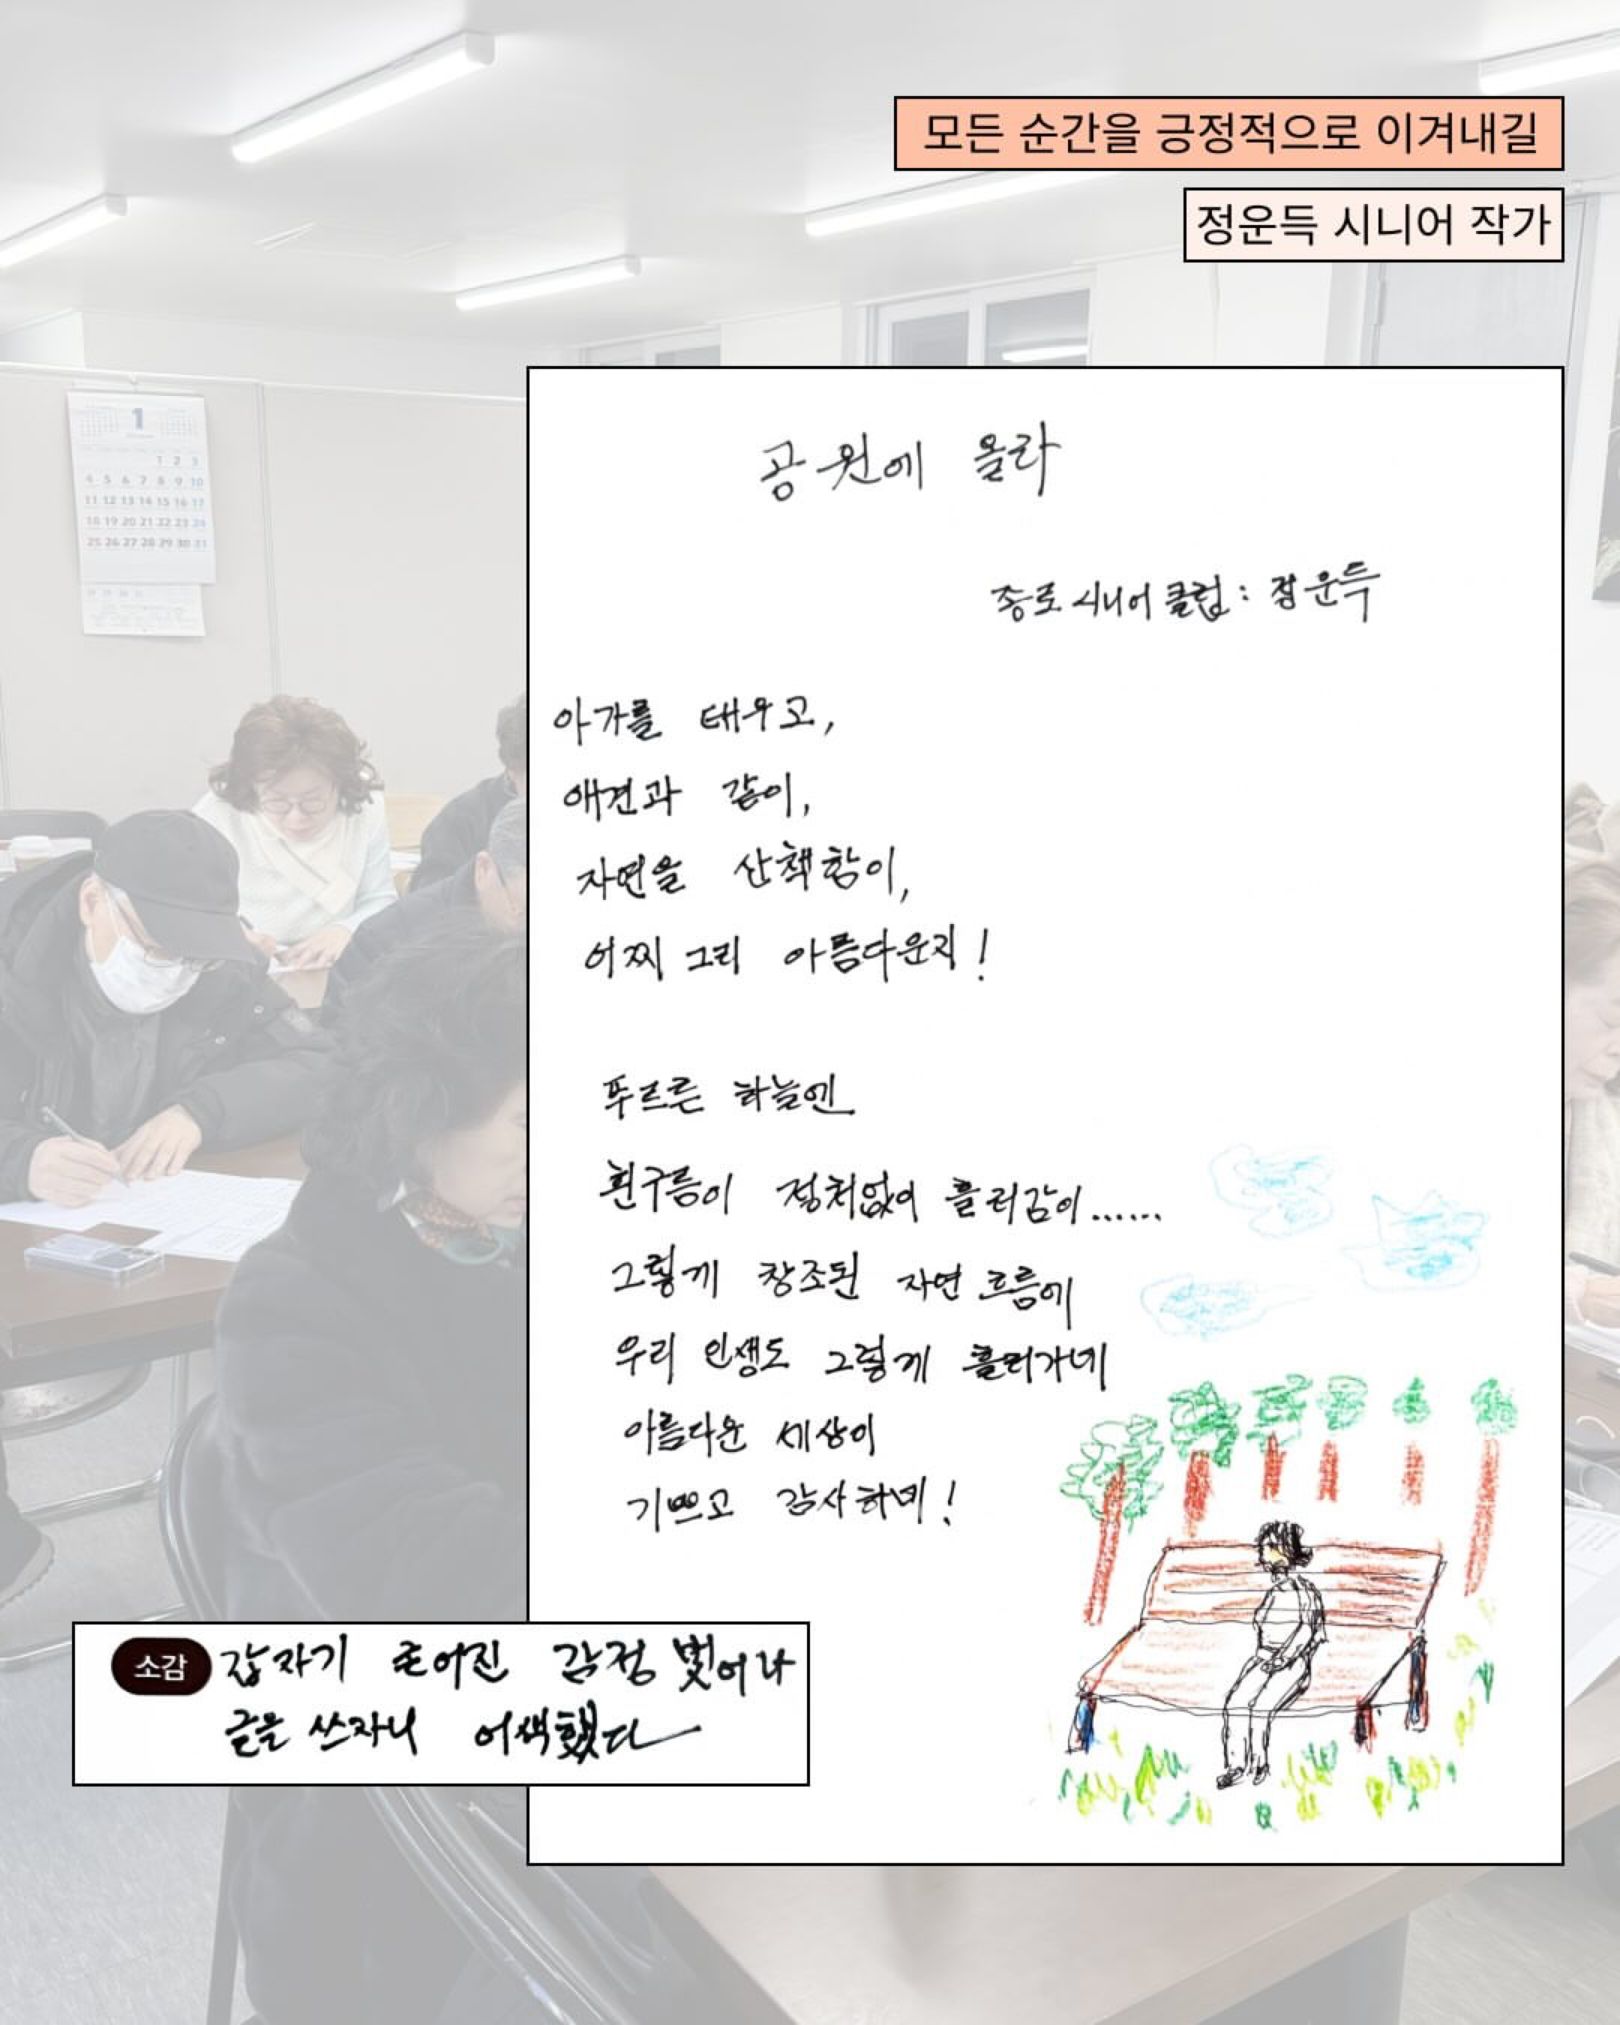 모든 순간을 긍정적으로 이겨내길
정운득 시니어 작가
1
1 2 3
4 5 6 7 8 9 10
11 12 13 14 15 16 17
18 19 20 21 22 23 24
25 26 27 28 29 30 31
공원에 올라
종로 시니어 클럽 : 정운득
아가를 태우고,
애견과 같이,
자연을 산책함이,
어찌 그리 아름다운지!
푸르른 하늘엔
흰구름이 정처없이 흘러감이......
그렇게 창조된 자연 흐름에
우리 인생도 그렇게 흘러가네
아름다운 세상이
기쁘고 감사하네!
소감
갑자기 감정 벗어나
글을 쓰자니 어색했다